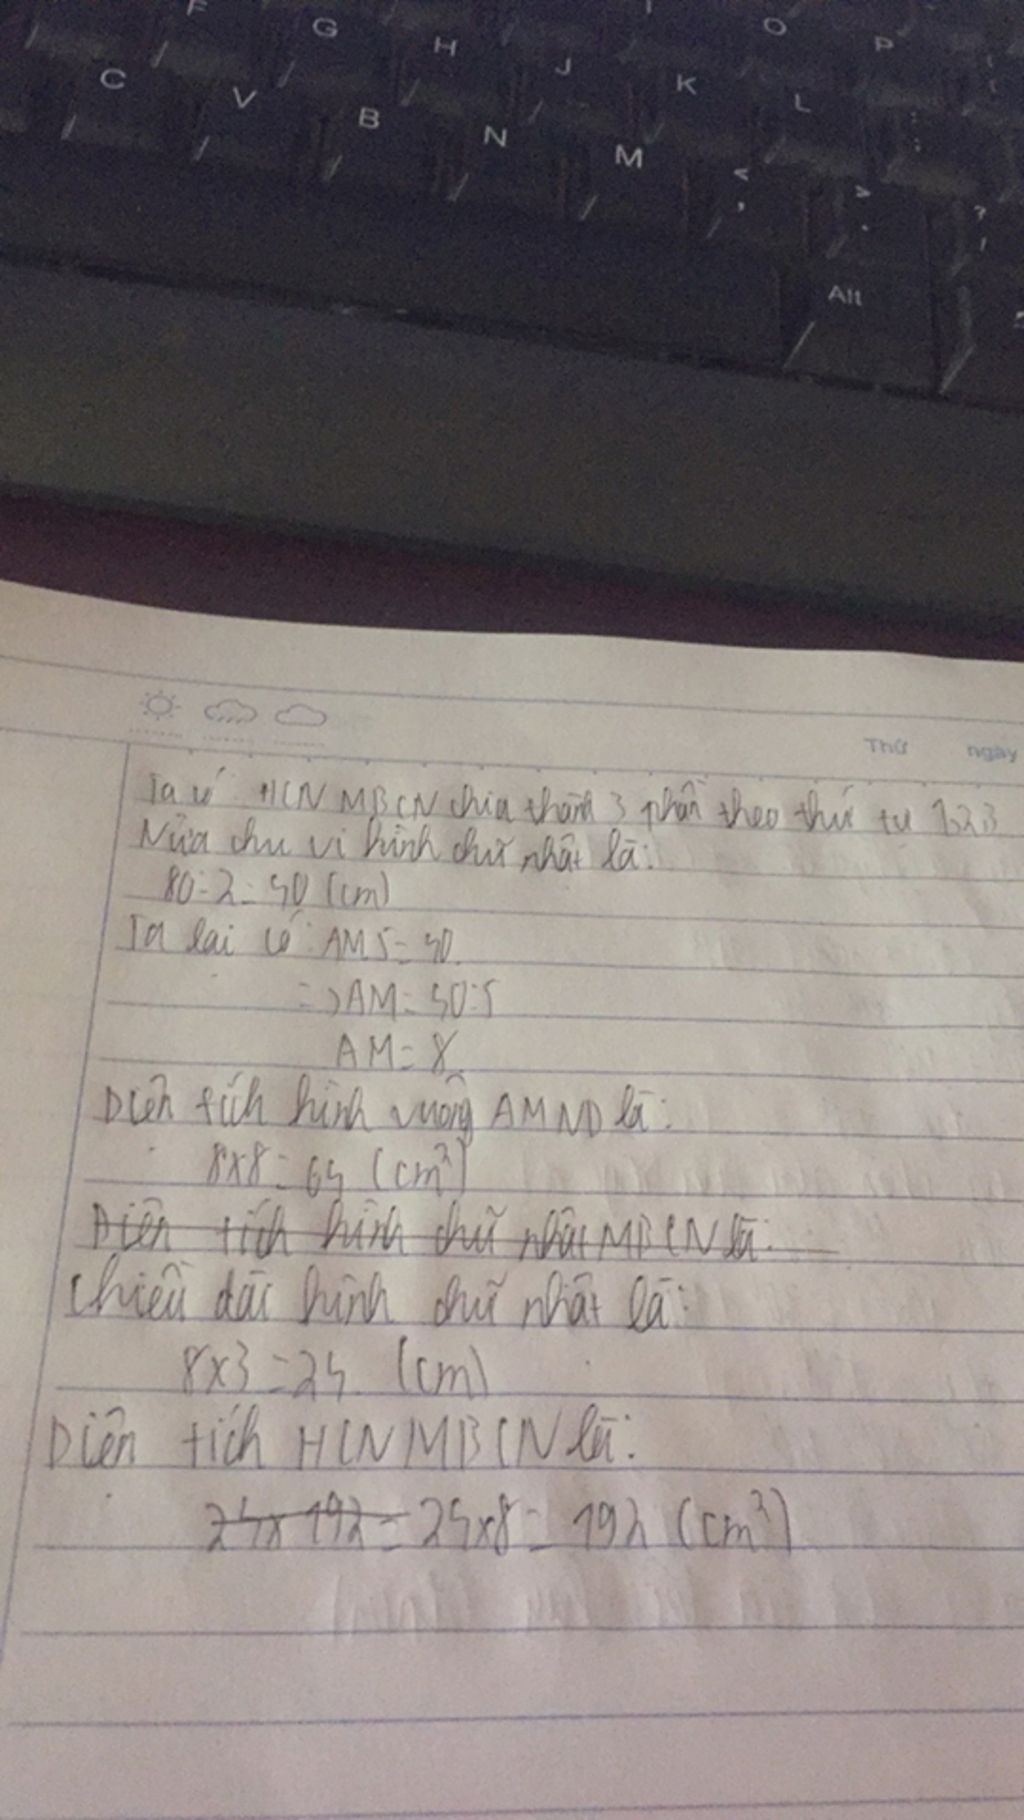 F G H J K L O P
C V B N M < , > . ? /
Alt
Thứ ngày
Ta có HCN MBCN chia thành 3 phần theo thứ tự 1,2,3
Nửa chu vi hình chữ nhật là:
80:2=40 (cm)
Ta lại có: AM5=40.
=>AM=40:5
AM=8
Diện tích hình vuông AMND là:
8x8=64 (cm²)
Diện tích hình chữ nhật MBCN là:
Chiều dài hình chữ nhật là:
8x3=24 (cm)
Diện tích HCN MBCN là:
24x192= 24x8= 192 (cm²)